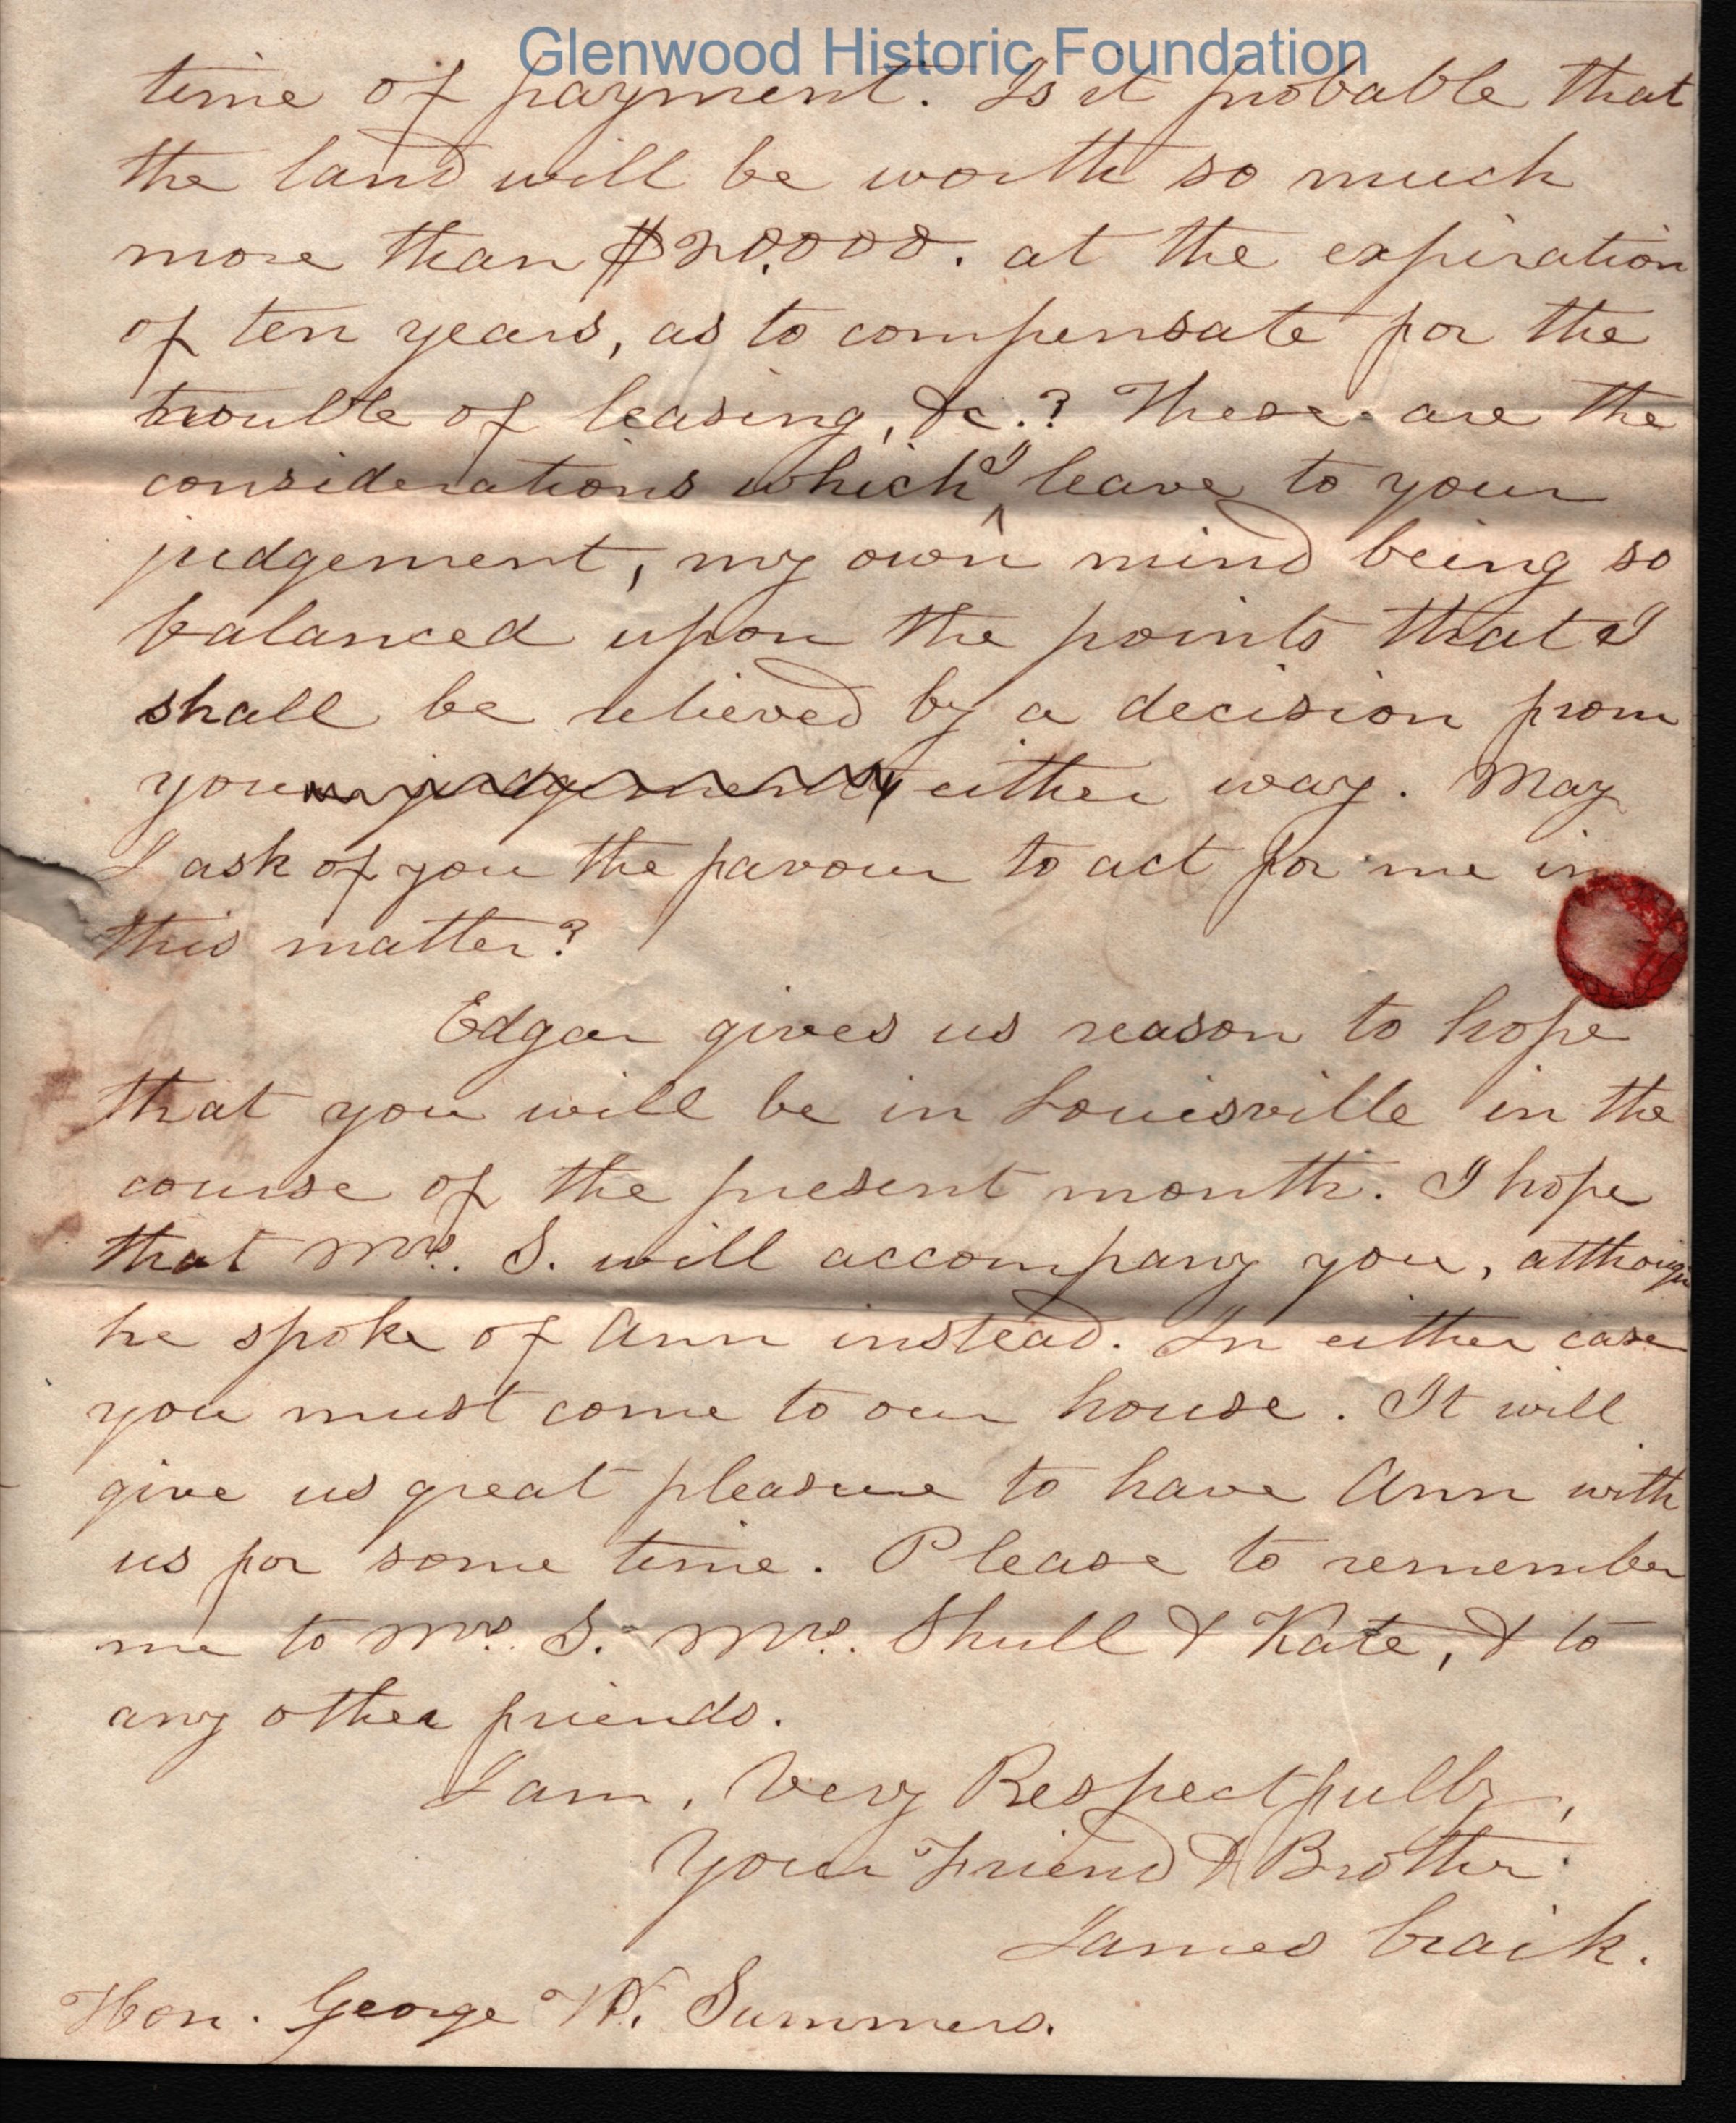 Glenwood Historic Foundation
time of payment. Is it probable that
the land will be worth so much
more than $20,000. at the expiration
of ten years, as to compensate for the
trouble of leasing, &c.? These are the
considerations which I leave to your
judgement, my own mind being so
balanced upon the points that I
shall be relieved by a decision from
your judgement either way. May
I ask of you the favour to act for me in
this matter?
Edgar gives us reason to hope
that you will be in Louisville in the
course of the present month. I hope
that Mrs. S. will accompany you, although
he spoke of Ann instead. In either case
you must come to our house. It will
give us great pleasure to have Ann with
us for some time. Please to remember
me to Mrs. S. Mrs. Shull & Kate, & to
any other friends.
I am, Very Respectfully,
Your Friend & Brother
James Craik.
Hon. George W. Summers.